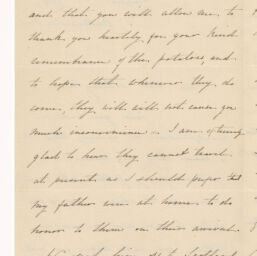 and that you will allow me to
thank you heartily for your kind
remembrance of the potatoes, and
to hope that whenever they do
come, they will not cause you
much inconvenience. I am
glad to hear they cannot travel
at present as I should prefer that
my father were at home to do
honor to them on their arrival.